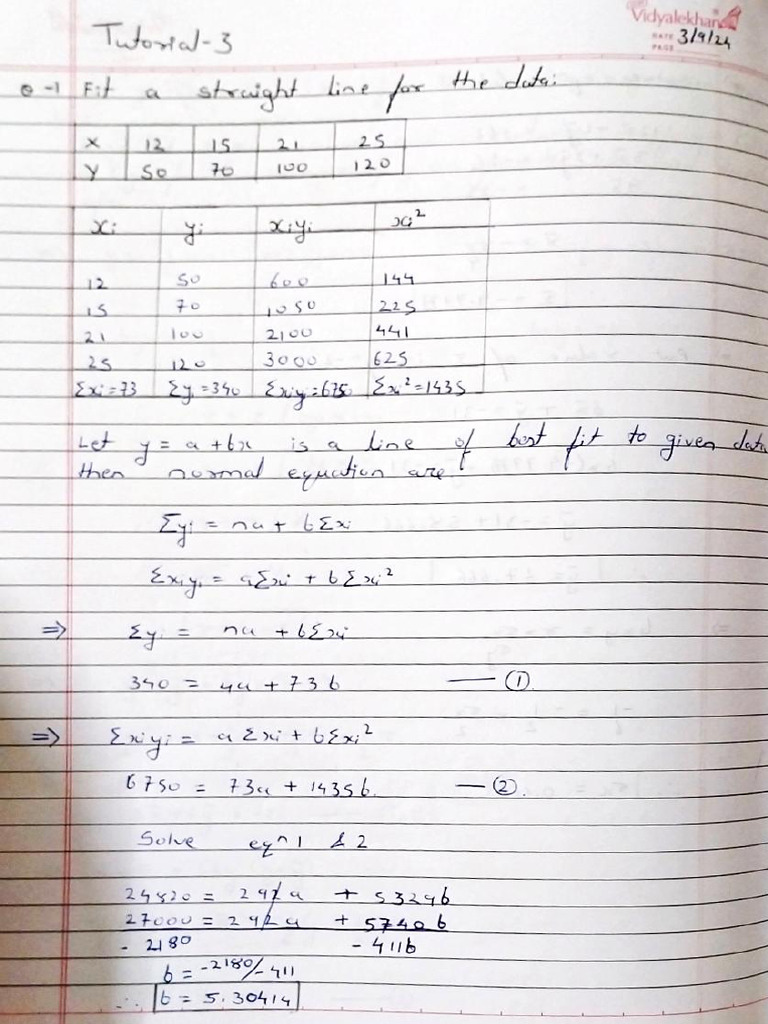 Vidyalekhan
DATE 3/9/24
PAGE
Tutorial-3
Q-1 Fit a straight line for the data:
X 12 15 21 25
Y 50 70 100 120
xi yi xiyi xi²
12 50 600 144
15 70 1050 225
21 100 2100 441
25 120 3000 625
Σxi=73 Σyi=340 Σxiyi=6750 Σxi²=1435
Let y = a+bx is a line of best fit to given data
then normal equation are
Σyi = na + bΣxi
Σxiyi = aΣxi + bΣxi²
⇒ Σyi = na + bΣxi
340 = 4a + 73b — ①.
⇒ Σxiyi = aΣxi + bΣxi²
6750 = 73a + 1435b. — ②.
Solve eqn 1 & 2
24820 = 292a + 5329b
27000 = 292a + 5740b
- 2180 - 411b
b = -2180/-411
∴ b = 5.30414